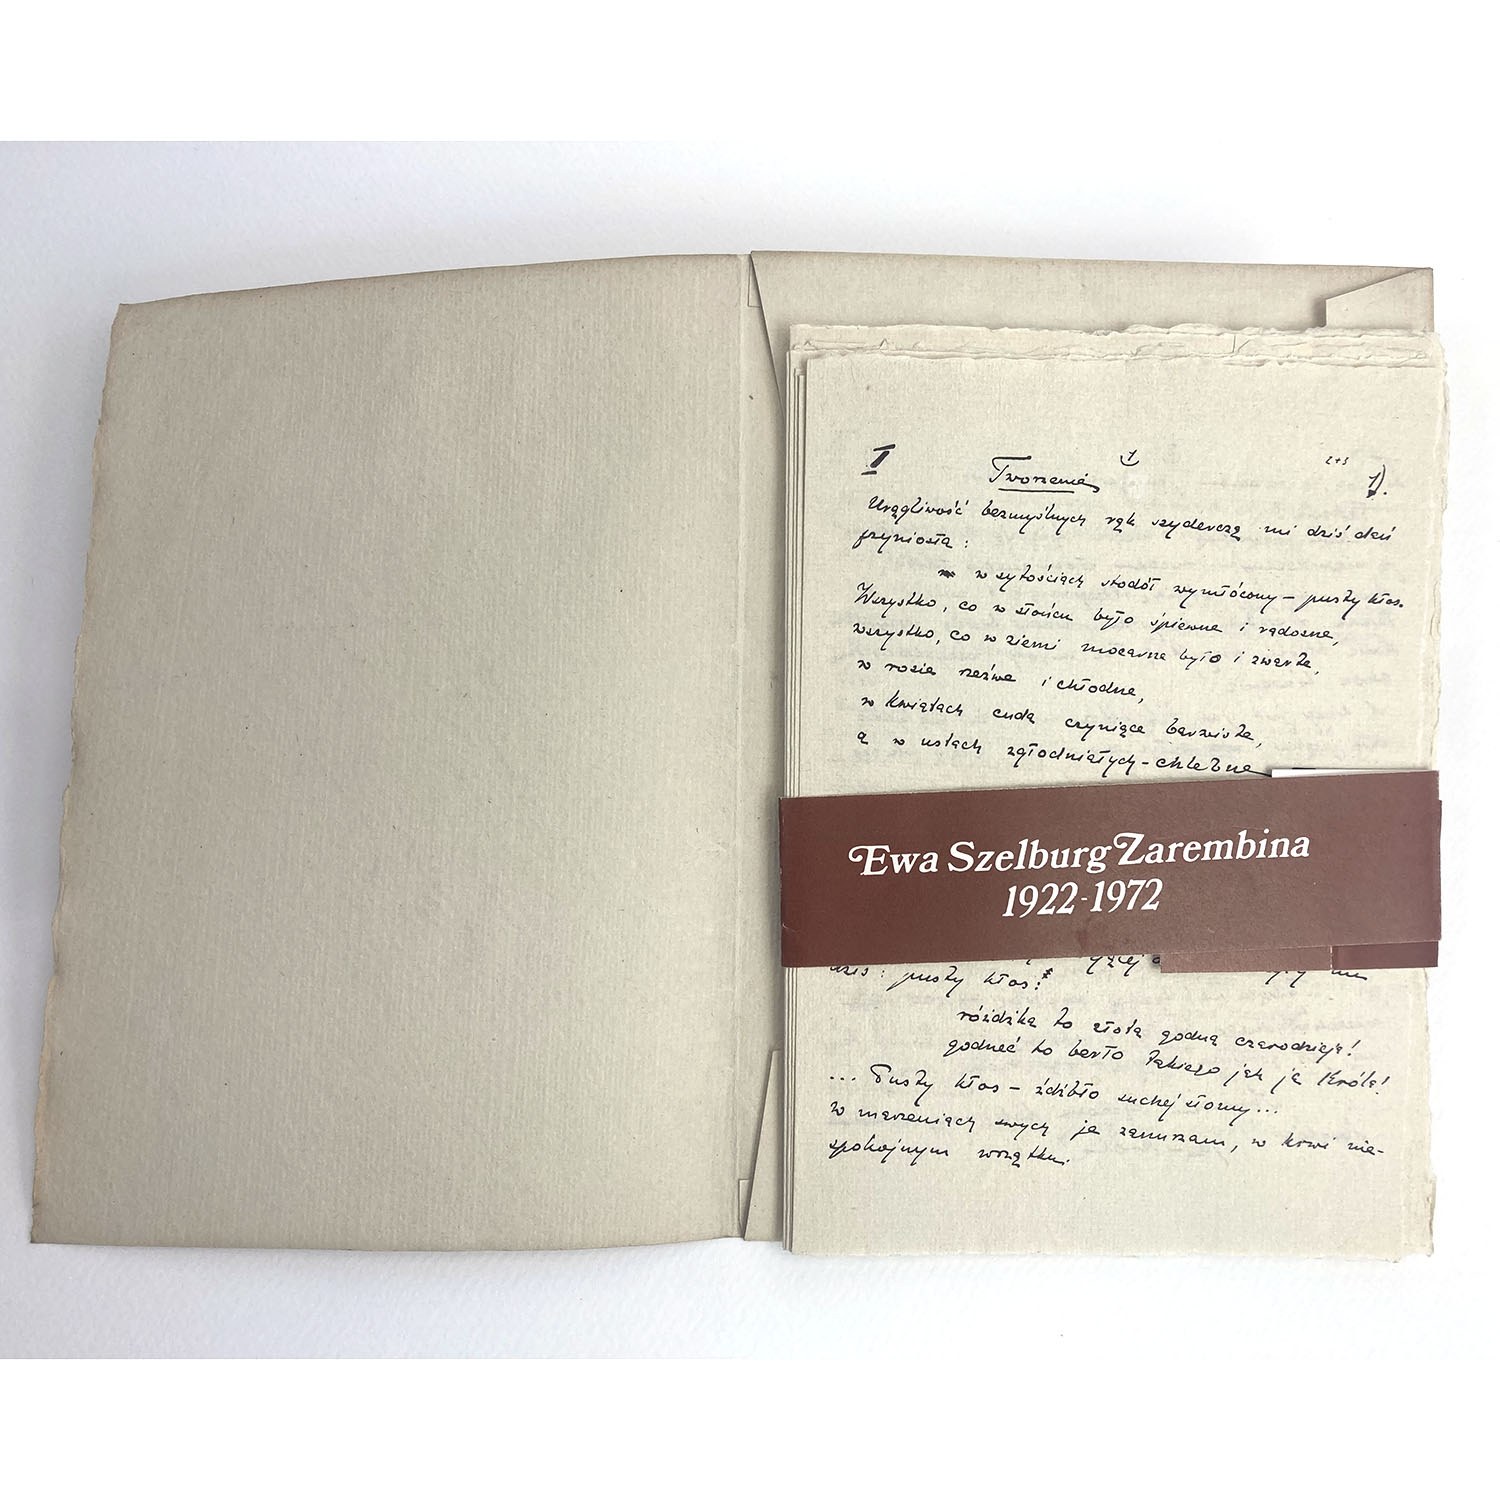 I
1
2+3
1).
Tworzenie
Urągliwość bezmyślnych rąk szyderczą mi dziś dań
przyniosła:
w sytościach stodół wymłócony – pusty kłos.
Wszystko, co w słońcu było śpiewne i radosne,
wszystko, co w ziemi mocarne było i zwarte,
w rosie rzeźwe i chłodne,
w kwiatach cuda czyniące barwiste,
a w ustach zgłodniałych – chlebne
Ewa Szelburg Zarembina
1922-1972
dziś: pusty kłos!
różdżka to złota godna czarodzieja!
godneć to berło takiego jak ja Króla!
... Pusty kłos – źdźbło suchej słomy...
w marzeniach swych je zanurzam, w krwi nie-
spokojnym wrzątku.